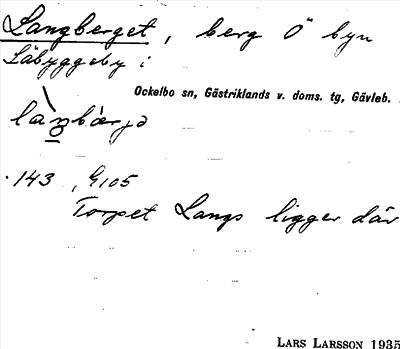 Langberget, berg Ö byn
Säbyggeby i
Ockelbo sn, Gästriklands v. doms. tg, Gävleb.
143
Torpet Langs ligger där
LARS LARSSON 1935